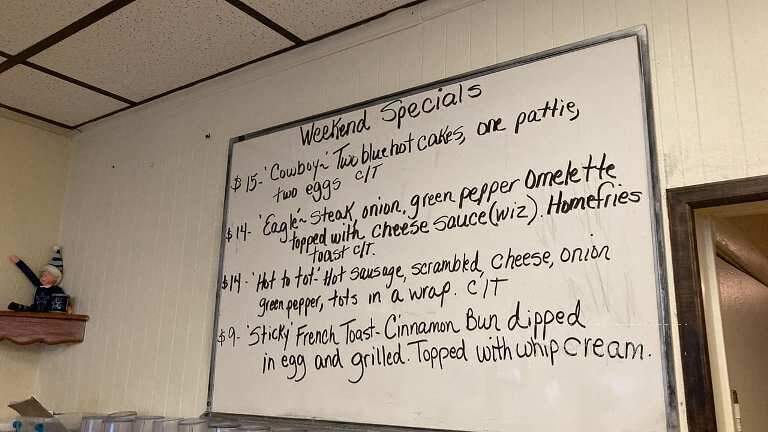 Weekend Specials
$15- 'Cowboy~' Two bluehot cakes, one pattie,
two eggs c/T
$14- 'Eagle'~ steak, onion, green pepper Omelette
topped with cheese sauce(wiz). Homefries
toast c/T.
$14- 'Hot to tot-' Hot sausage, scrambled, cheese, onion
green pepper, tots in a wrap. c/T
$9- 'Sticky' French Toast- Cinnamon Bun dipped
in egg and grilled. Topped with whip cream.